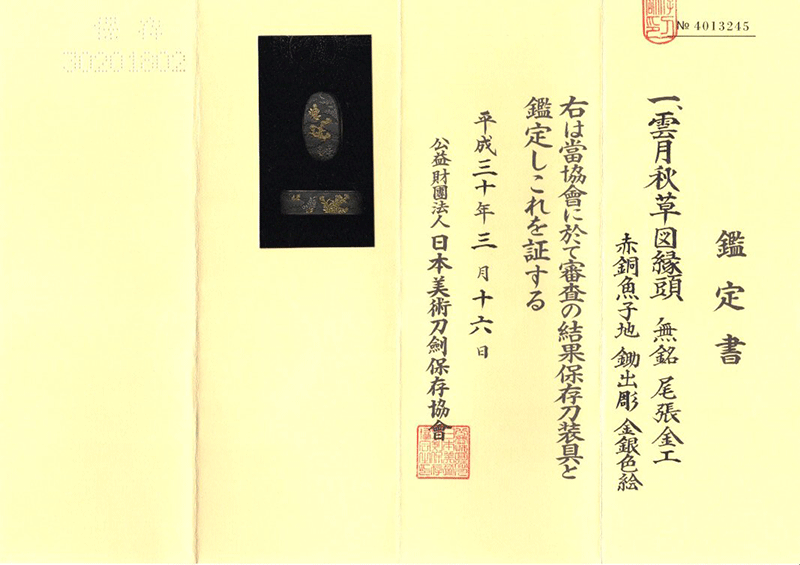 № 4013245
鑑定書
一、雲月秋草図縁頭 無銘 尾張金工
赤銅魚子地 鋤出彫 金銀色絵
右は當協會に於て審査の結果保存刀装具と
鑑定しこれを証する
平成三十年三月十六日
公益財團法人 日本美術刀劍保存協會
保存
30201802